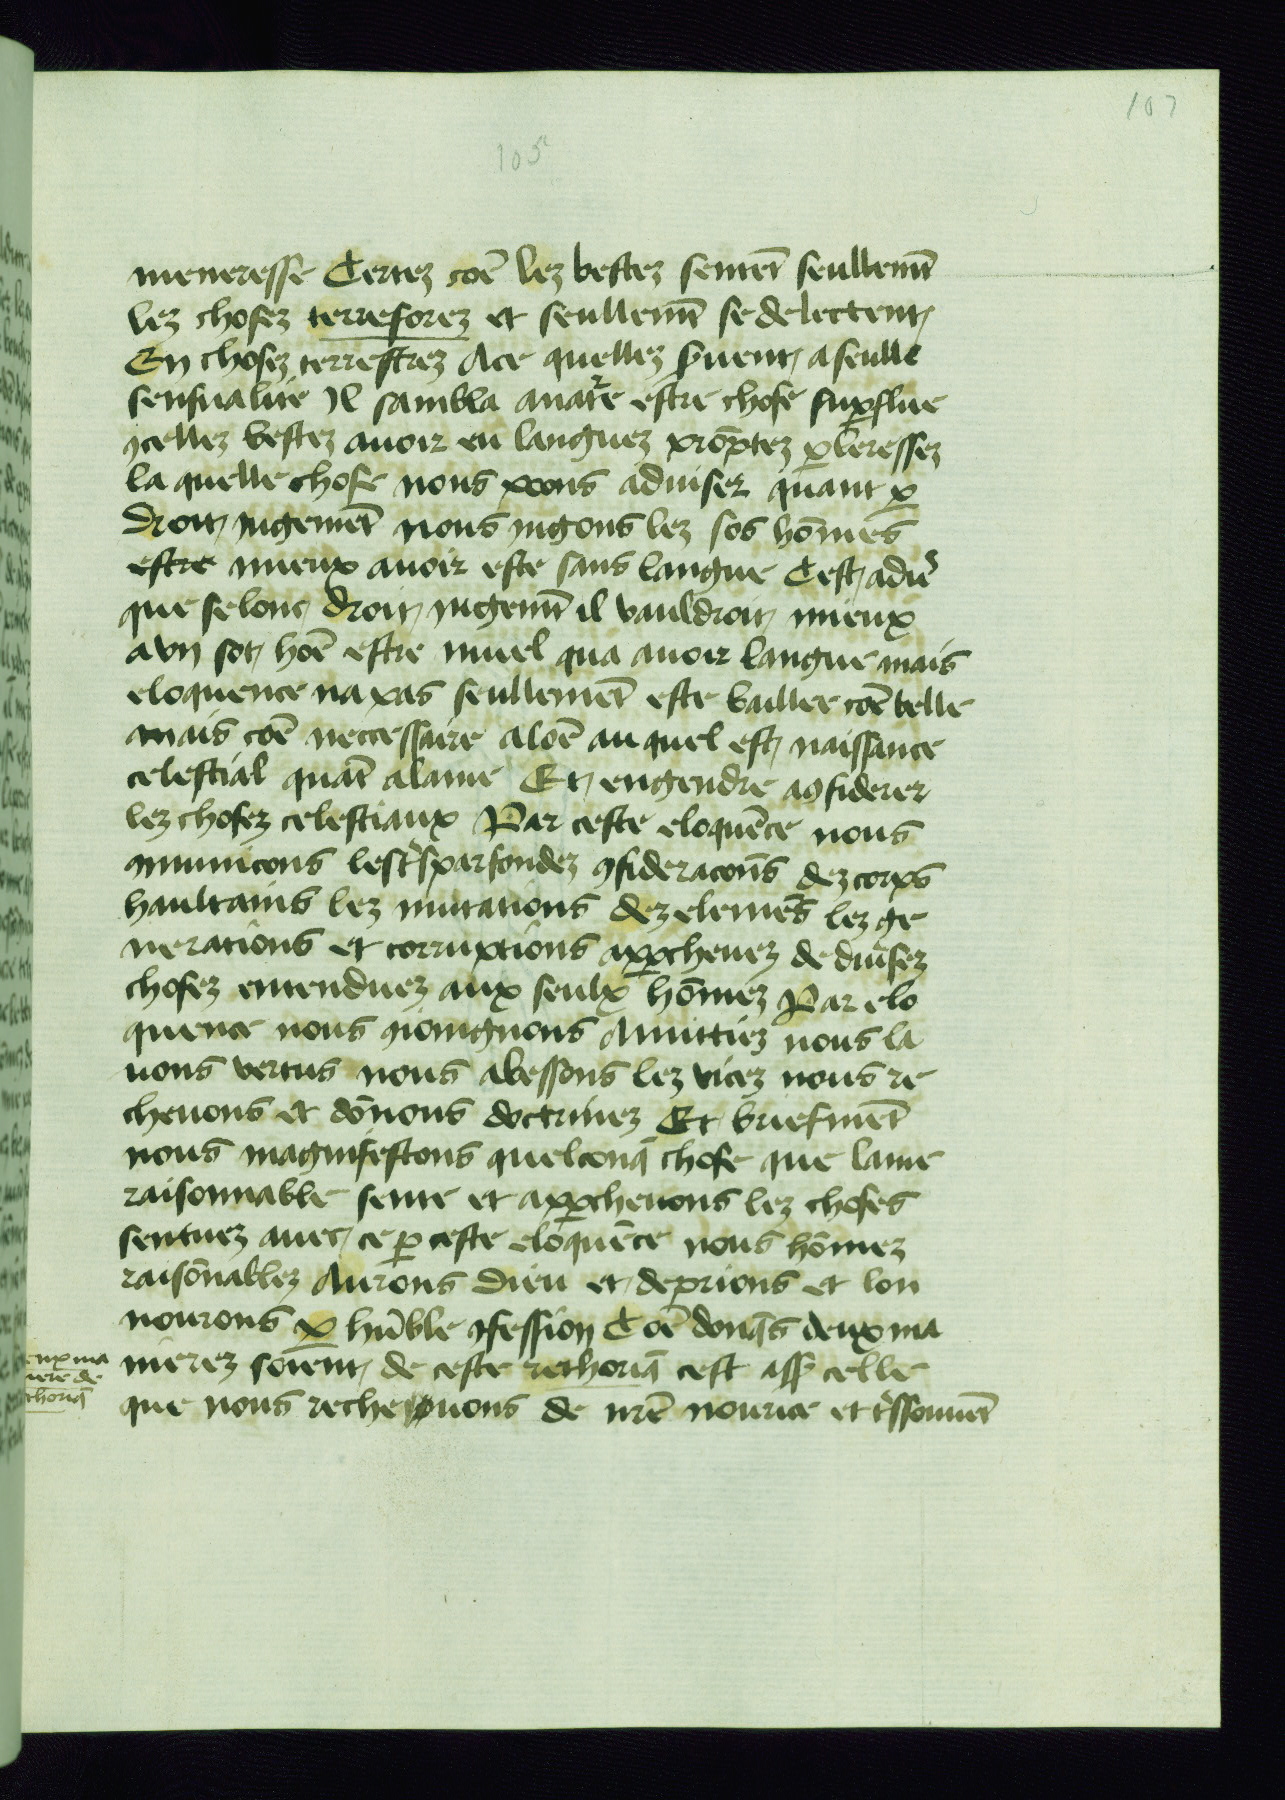 107
105
meneresse Certez coē lez bestez sentēt seullemt̄
lez chosez terresorez et seullemt̄ se delectent
En chosez terrestrez Ace quellez seruent a seulle
sensualite Il sambla anatᵉre estre chose supflue
ycellez bestez auoir eu languez promptez pleressez
la quelle chose nous poons aduiser quant p
droit iugemēt nous iugons lez sos hōmes
estre mieux auoir este sans langue Cest adiᵉ
que selonc droit iugemt̄ il vauldroit mieux
a vn sot hoē estre muel qua auoir langue mais
eloquence na pas seullemēt este baillee coē belle
mais coē neccessaire aloē au quel est naissance
celestial quāt a lame Et engendre a ꝯsiderer
lez chosez celestiaux Par ceste eloquēce nous
ꝯmunicons les tsparfondez ꝯsideracōns dez corps
haultains lez mutations dez elemēs lez ge
nerations et corruptions appcheuez de diuᵉsez
chosez entenduez aux seulx hōmez Par elo
quence nous ꝯioingnons Amittiez nous la
uons vertus nous abessons lez vicez nous re
cheuons et dōnons doctrinez Et briefmēt
nous magnifestons quelconq̄ chose que lame
raisonnable sente et appcheuons lez choses
sentuez auec ce p ceste eloquēce nous hōmez
raisōnablez Aurons dieu et deprions et lon
nourons p hūble ꝯfession Coē donq̄s deux ma
nierez soient de ceste rethoriq̄ cest ass celle
que nous recheuons de nrē nourice et tssouuēt
eux ma
niere de
thoriq̄